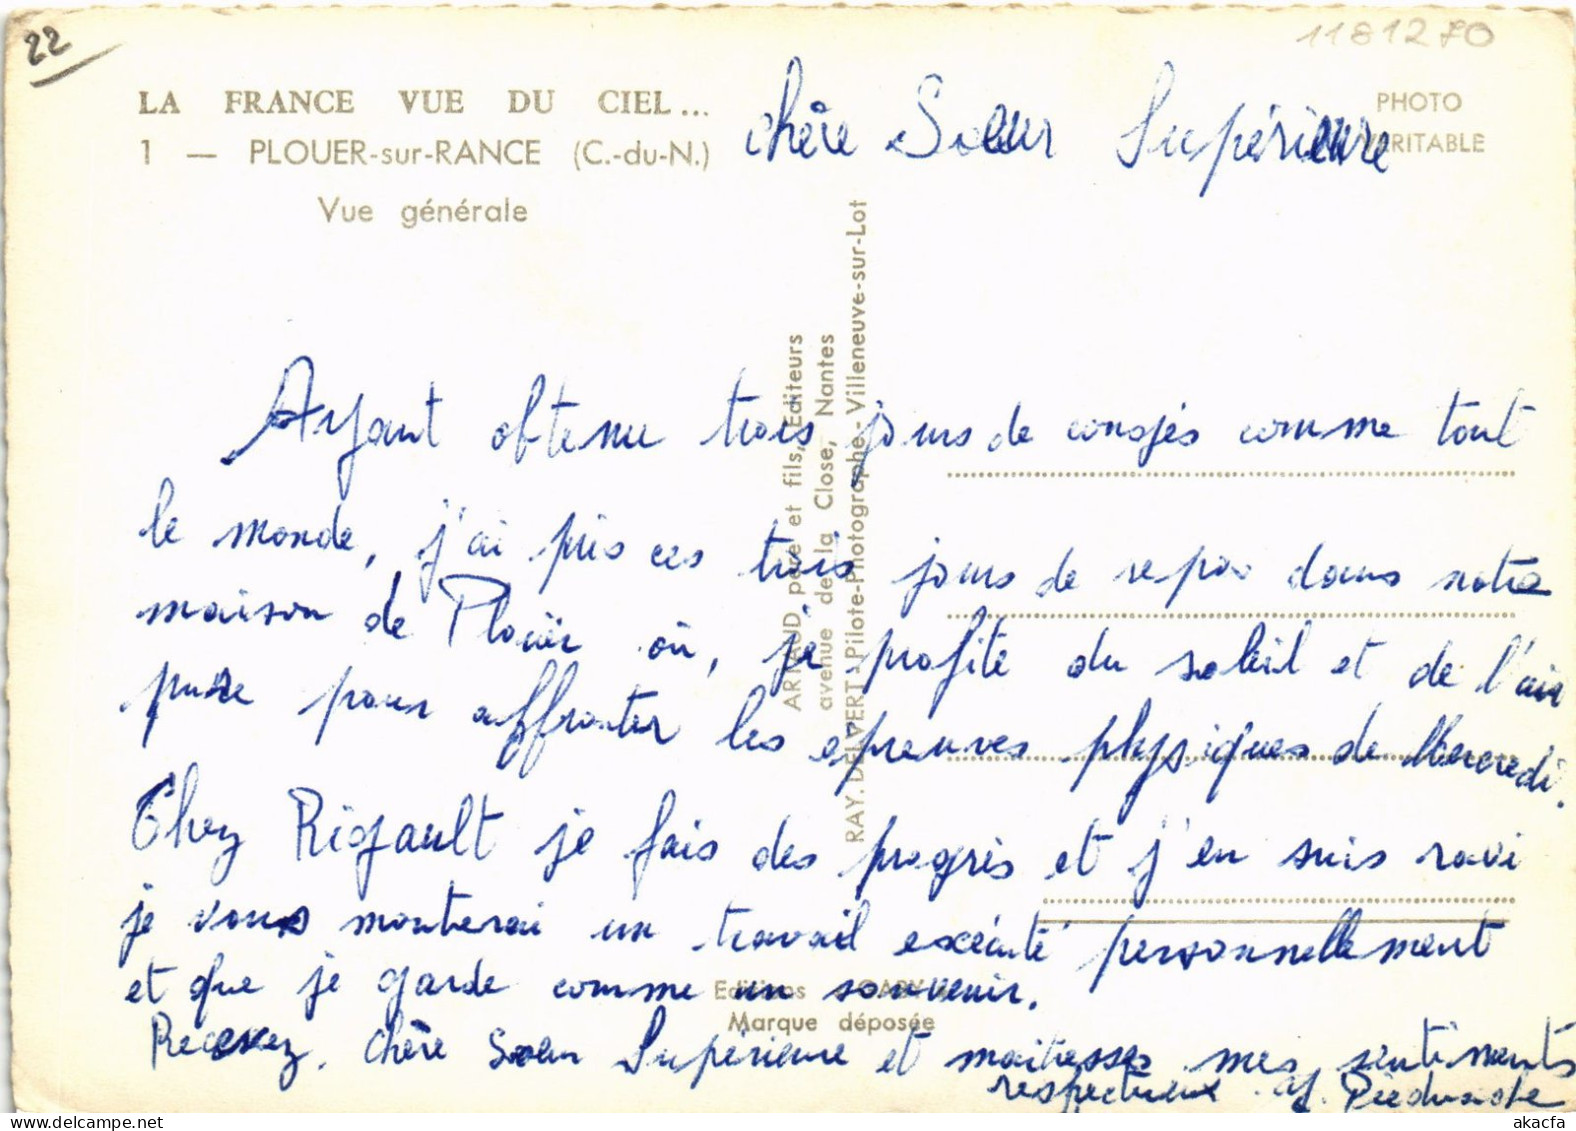 22
1181270
LA FRANCE VUE DU CIEL...
1 — PLOUER-sur-RANCE (C.-du-N.)
Vue générale
PHOTO
VÉRITABLE
chère Soeur Supérieure
ARTAUD père et fils, Editeurs
avenue de la Close, Nantes
RAY. DELVERT - Pilote-Photographe - Villeneuve-sur-Lot
Ayant obtenu trois jours de congés comme tout
le monde, j'ai pris ces trois jours de repos dans notre
maison de Plouër où, je profite du soleil et de l'air
pure pour affronter les epreuves physiques de Mercredi.
Chez Rigault je fais des progrès et j'en suis ravi
je vous montrerai un travail exécuté personnellement
et que je garde comme un souvenir.
Recevez, chère Soeur Supérieure et maitresses mes sentiments
respectueux.
Editions GABY
Marque déposée
akacfa